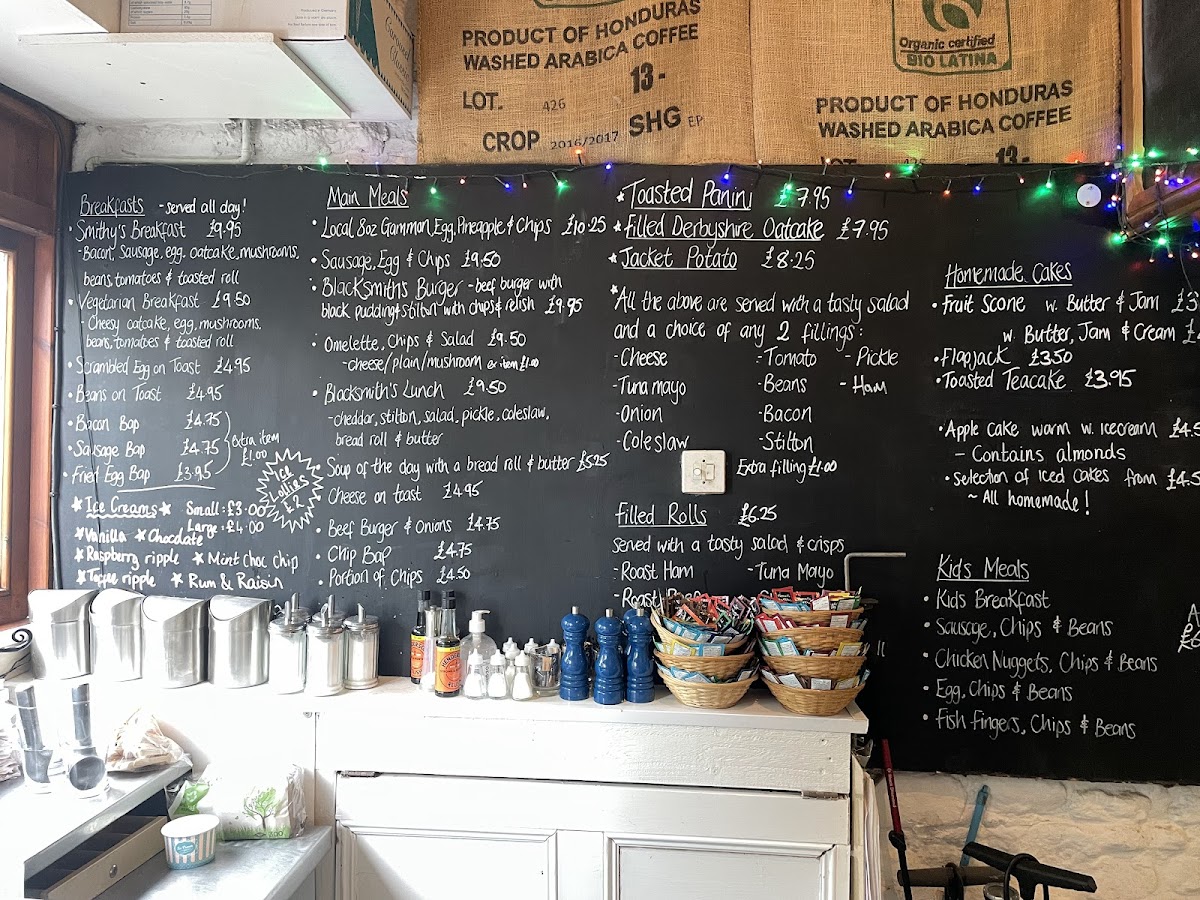 PRODUCT OF HONDURAS
WASHED ARABICA COFFEE
13-
LOT. 426
CROP 2016/2017 SHG EP
Organic certified
BIO LATINA
PRODUCT OF HONDURAS
WASHED ARABICA COFFEE
13-
Breakfasts - served all day!
• Smithy's Breakfast £9.95
- Bacon, Sausage, egg, oatcake, mushrooms,
beans, tomatoes & toasted roll
• Vegetarian Breakfast £9.50
- Cheesy oatcake, egg, mushrooms,
beans, tomatoes & toasted roll
• Scrambled Egg on Toast £4.95
• Beans on Toast £4.95
• Bacon Bap £4.75
• Sausage Bap £4.75
• Fried Egg Bap £3.95
Extra item
£1.00
ICE
Lollies
£2
Ice Creams
Small: £3.00
Large: £4.00
Vanilla Chocolate
Raspberry ripple Mint choc chip
Toffee ripple Rum & Raisin
Main Meals
• Local 8oz Gammon, Egg, Pineapple & Chips £10.25
• Sausage, Egg & Chips £9.50
• Blacksmiths Burger - beef burger with
black pudding & stilton with chips & relish £9.95
• Omelette, Chips & Salad £9.50
- cheese/plain/mushroom ex item £1.00
• Blacksmith's Lunch £9.50
- cheddar, stilton, salad, pickle, coleslaw,
bread roll & butter
Soup of the day with a bread roll & butter £5.25
• Cheese on toast £4.95
• Beef Burger & Onions £4.75
• Chip Bap £4.75
• Portion of Chips £4.50
Toasted Panini £7.95
Filled Derbyshire Oatcake £7.95
Jacket Potato £8.25
All the above are served with a tasty salad
and a choice of any 2 fillings:
- Cheese - Tomato - Pickle
- Tuna mayo - Beans - Ham
- Onion - Bacon
- Coleslaw - Stilton
Extra filling £1.00
Filled Rolls £6.25
Served with a tasty salad & crisps
- Roast Ham - Tuna Mayo
- Roast
Homemade Cakes
• Fruit Scone w. Butter & Jam
w. Butter, Jam & Cream
• Flapjack £3.50
• Toasted Teacake £3.95
• Apple cake warm w. icecream
- Contains almonds
• Selection of iced cakes from
~ All homemade!
Kids Meals
• Kids Breakfast
• Sausage, Chips & Beans
• Chicken Nuggets, Chips & Beans
• Egg, Chips & Beans
• Fish fingers, Chips & Beans